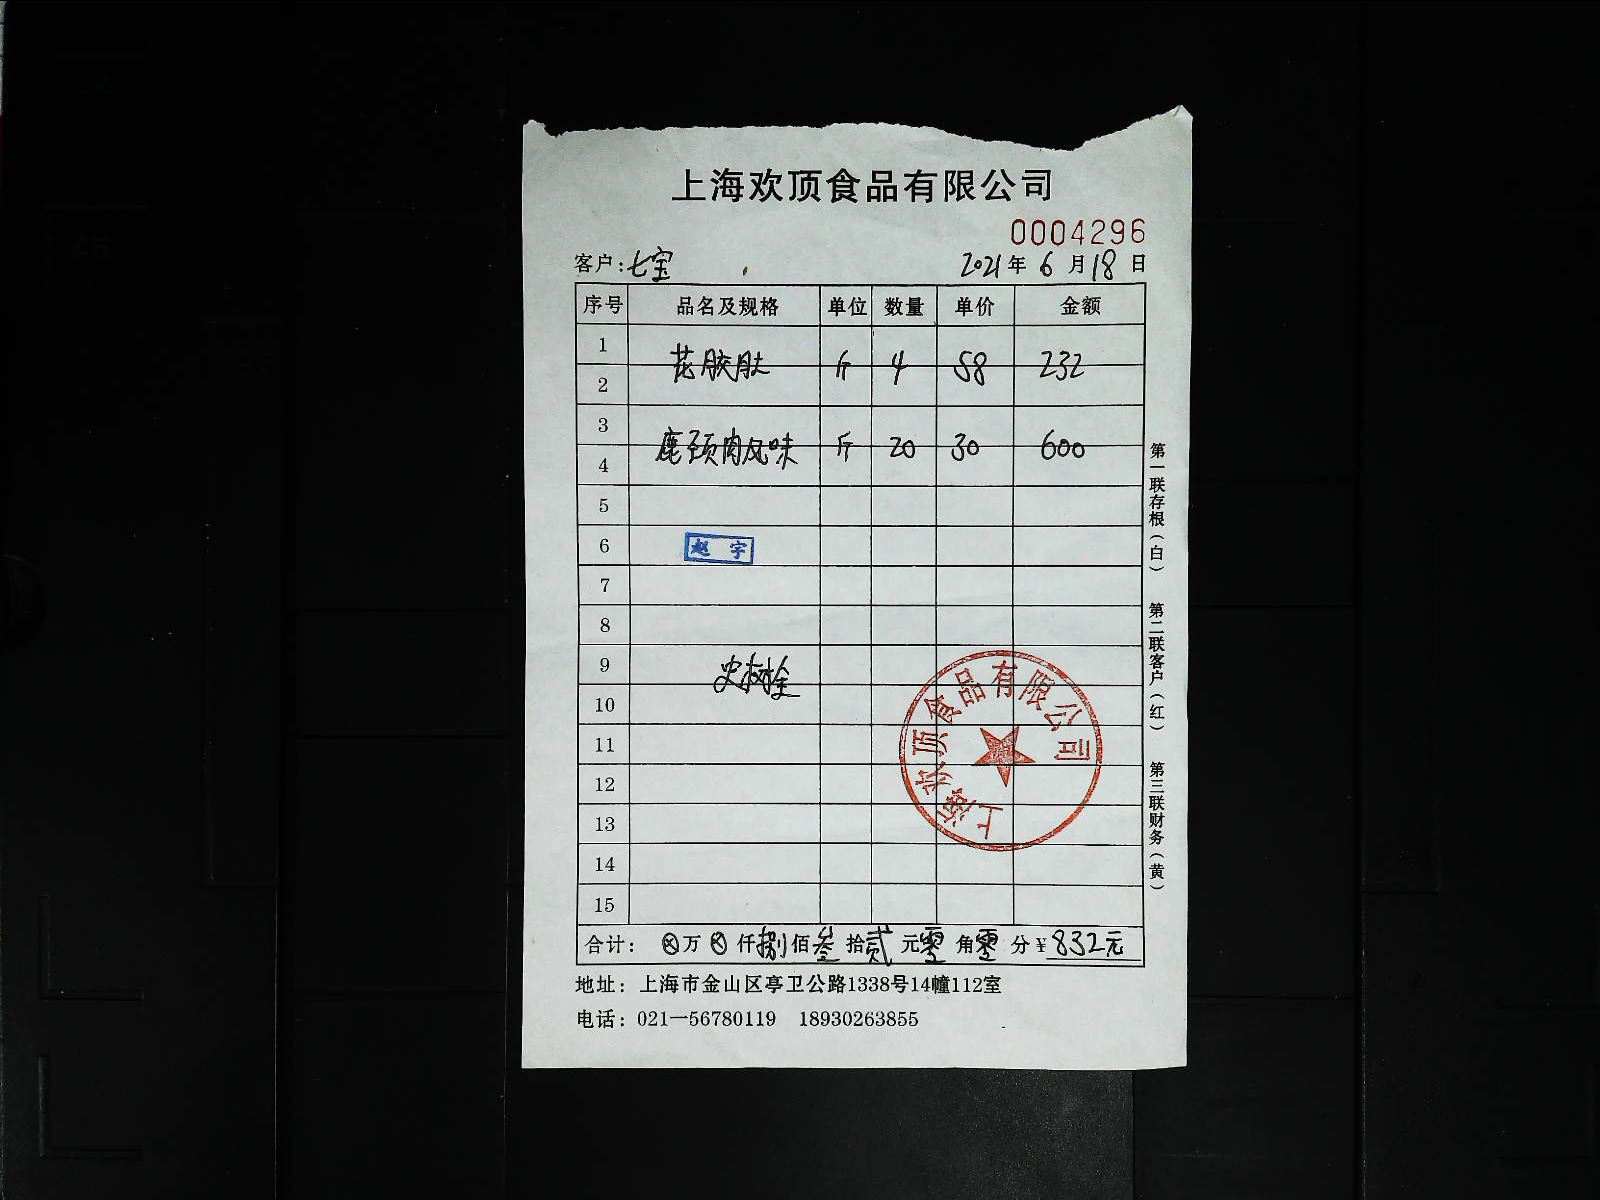 上海欢顶食品有限公司
0004296
客户:七宝 2021年6月18日
序号 品名及规格 单位 数量 单价 金额
1
花胶肚 斤 4 58 232
2
3
鹿颈肉风味 斤 20 30 600
4
5
6 赵宇
7
8
9
史树全
10
11
12
13
14
15
上海欢顶食品有限公司
合计: ⊗万⊗仟捌佰叁拾贰元零角零分¥832元
地址: 上海市金山区亭卫公路1338号14幢112室
电话: 021—56780119 18930263855
第一联存根(白) 第二联客户(红) 第三联财务(黄)